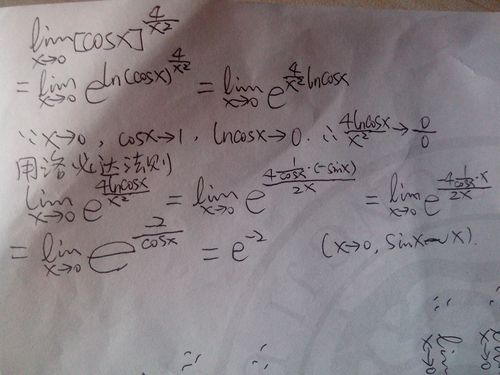 lim_{x→0} [cosx]^{4/x²}
= lim_{x→0} e^{ln(cosx)^{4/x²}} = lim_{x→0} e^{4/x² lncosx}
∵ x→0, cosx→1, lncosx→0. ∴ 4lncosx/x² → 0/0
用洛必达法则
lim_{x→0} e^{4lncosx/x²} = lim_{x→0} e^{4·1/cosx·(-sinx)/2x} = lim_{x→0} e^{-4·1/cosx·x/2x}
= lim_{x→0} e^{-2/cosx} = e^{-2} (x→0, sinx~x).